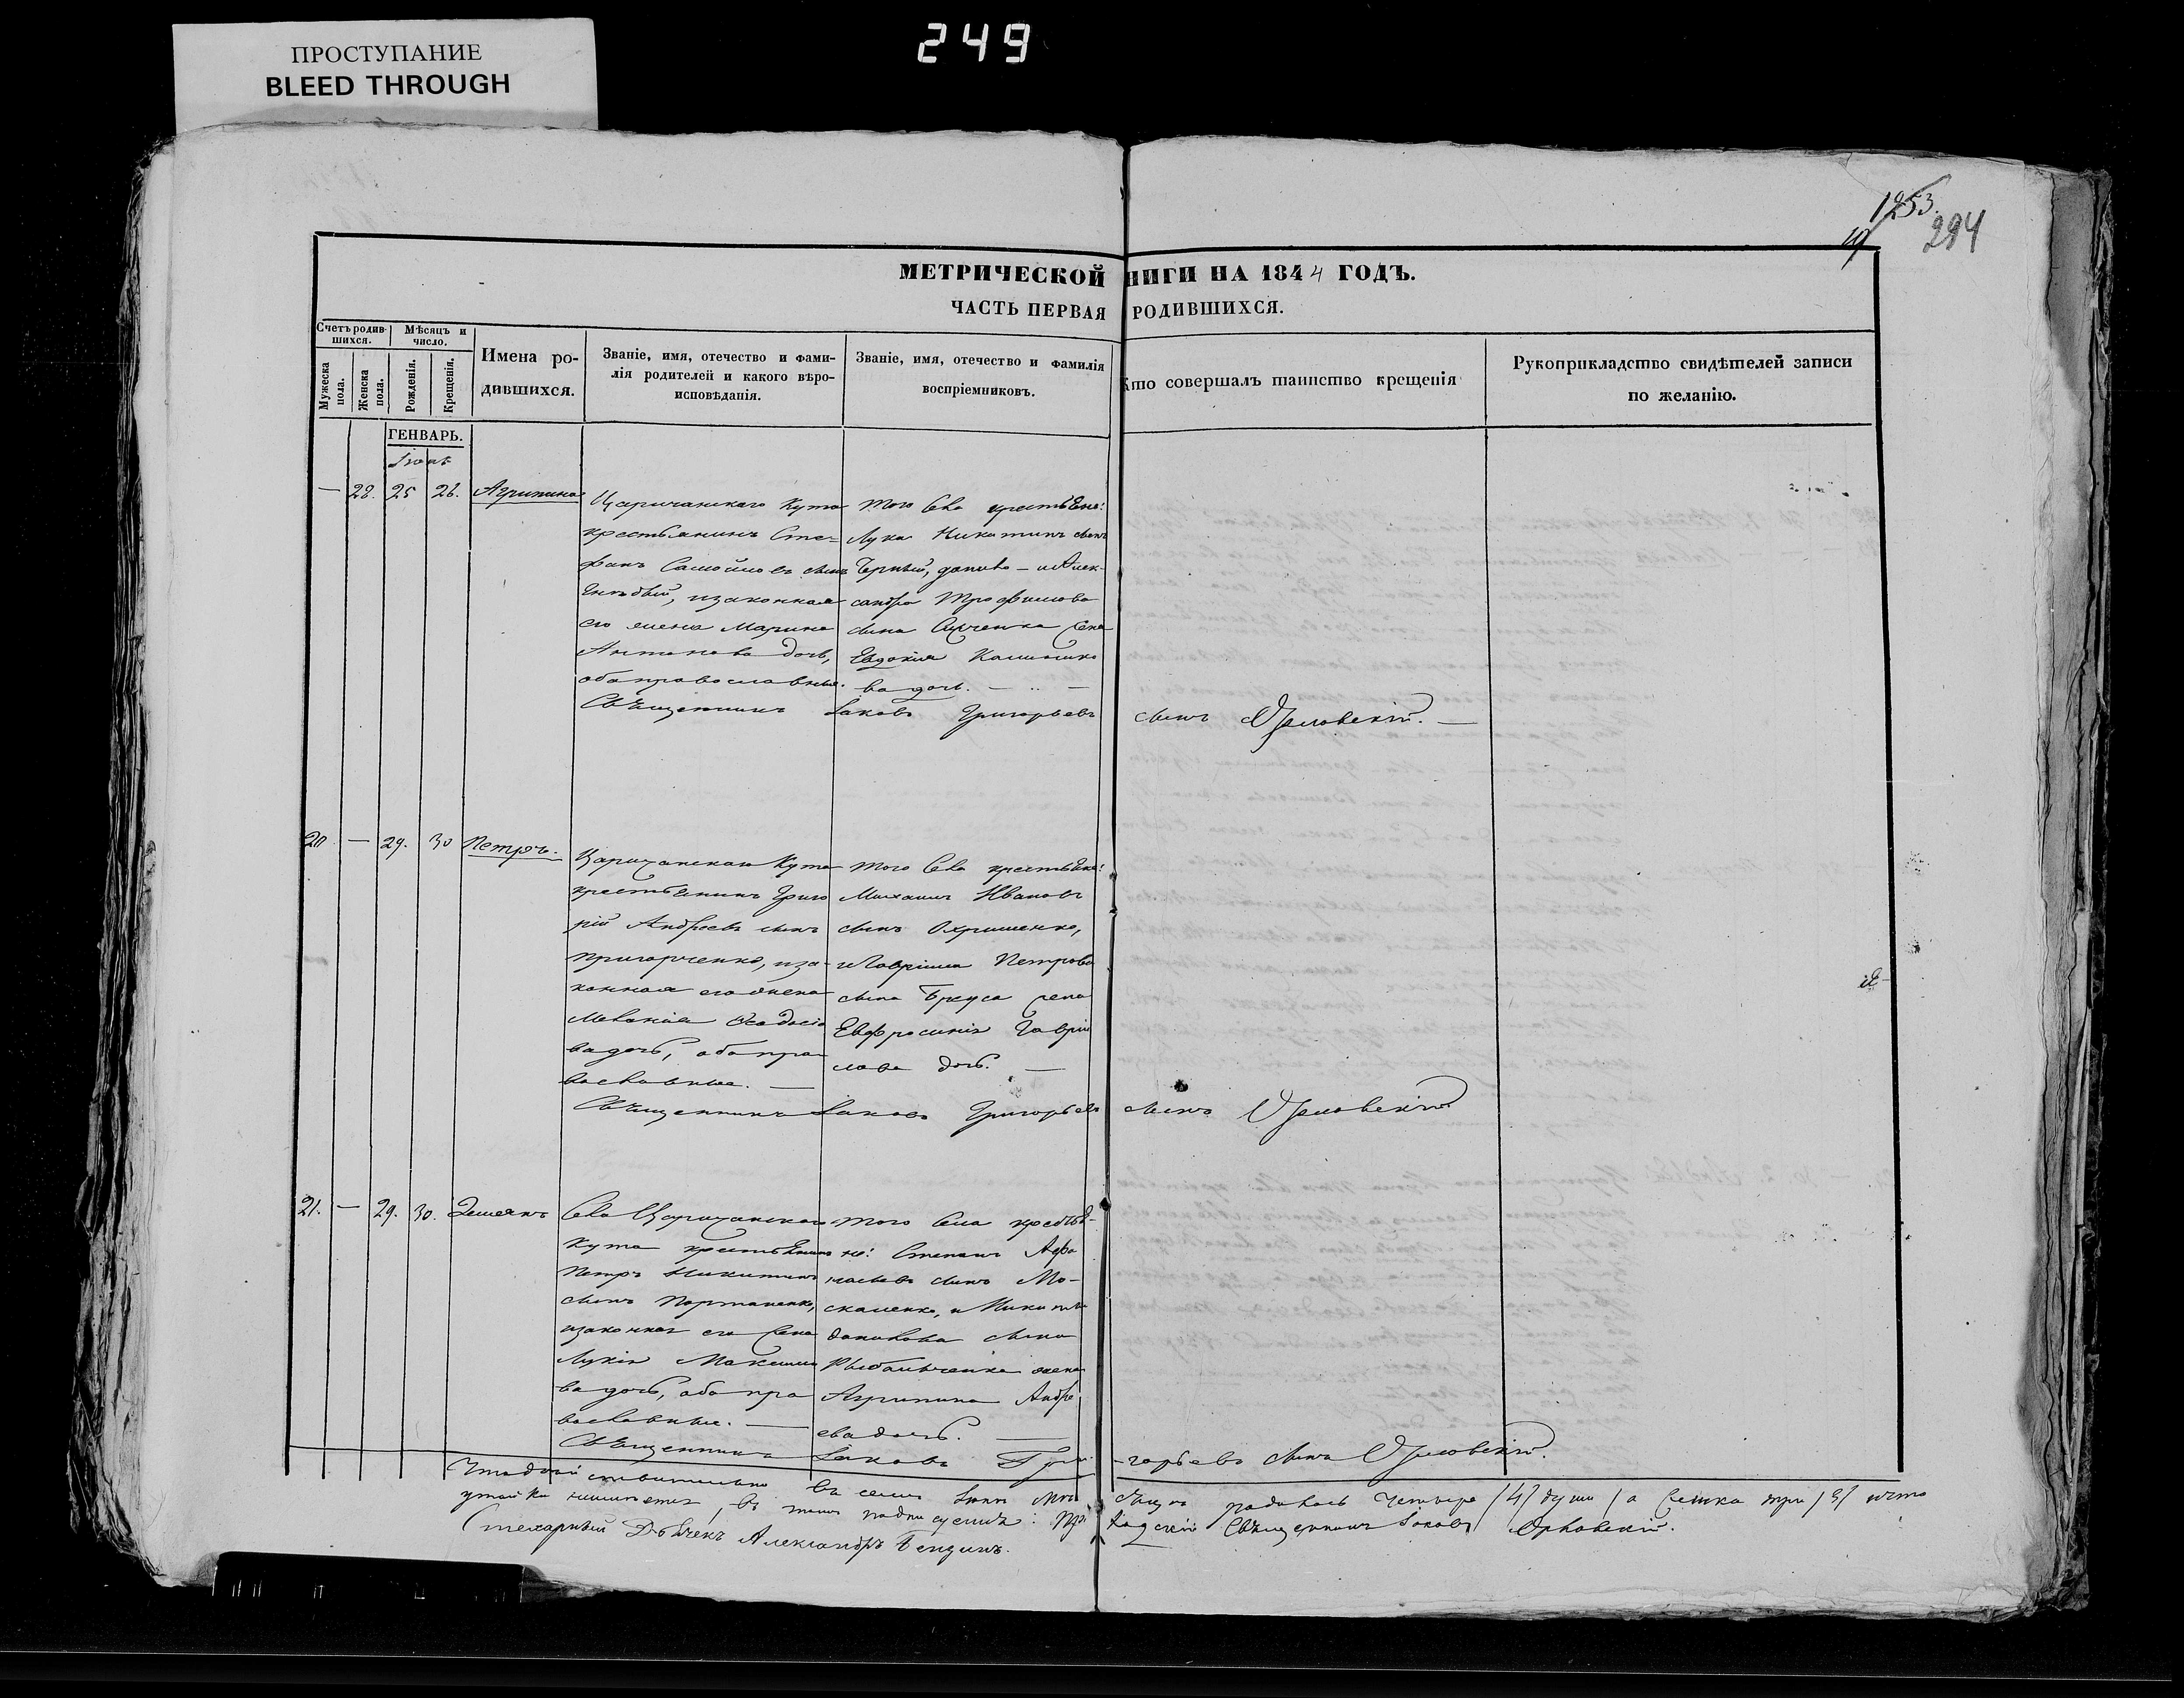 ПРОСТУПАНИЕ
BLEED THROUGH
249
1253.
294
МЕТРИЧЕСКОЙ НИГИ НА 1844 ГОДЪ.
ЧАСТЬ ПЕРВАЯ РОДИВШИХСЯ.
Счетъ родив-
шихся.
Мѣсяцъ и
число.
Мужеска
пола.
Женска
пола.
Рожденія.
Крещенія.
Имена ро-
дившихся.
Званіе, имя, отечество и фами-
лія родителей и какого вѣро-
исповѣданія.
Званіе, имя, отечество и фамилія
воспріемниковъ.
Кто совершалъ таинство крещенія
Рукоприкладство свидѣтелей записи
по желанію.
ГЕНВАРЬ.
Іюнь
— 22. 25 26. Агрипина
Царичанскаго Кута
крестьянинъ Сте=
фанъ Самойловъ сынъ
изаконная
его жена Марина
Антонова дочь,
оба православные.
того Села
Лука Никитинъ сынъ
Черный, — и Алек-
сандра Трофимова
сына жена
Евдокия
ва дочь. — " —
Священникъ Іаковъ Григорьевъ сынъ Орловскій. —
20 — 29. 30 Петръ.
Царичанскаго Кута
крестьянинъ Григо
рій Андреевъ сынъ
Григорченко, иза-
конная его жена
Меланія Феодосіе
ва дочь, оба пра
вославные. —
того Села
Михаилъ Ивановъ
сынъ Охрименко,
и Гавріила Петрова
сына Бруса жена
Евфросинія Гаврі
лова дочь. —
Священникъ Іаковъ Григорьевъ сынъ Орловскій
21. — 29. 30. Демеянъ
Села Царичанскаго
Кута крестьянинъ
Петръ Никитинъ
сынъ Портаненко,
изаконная его жена
Лукія Максимо
ва дочь, оба пра
вославные. —
того Села крестья-
не: Степанъ Афа
насьевъ сынъ Мо-
скаленко, и Никиты
Данилова сына
Рыбальченка жена
Агрипина Андре
ева дочь. —
Священникъ Іаковъ Гри -горьевъ сынъ Орловскій.
Что действительно въ семъ Іюнѣ Мѣ сяцѣ родилось четыре /4/ душы /а женска три /3/ и что
въ томъ подписуемся: При ходскій Священникъ Іаковъ Орловскій.
Стихарный Дьячекъ Александръ Бензинъ.